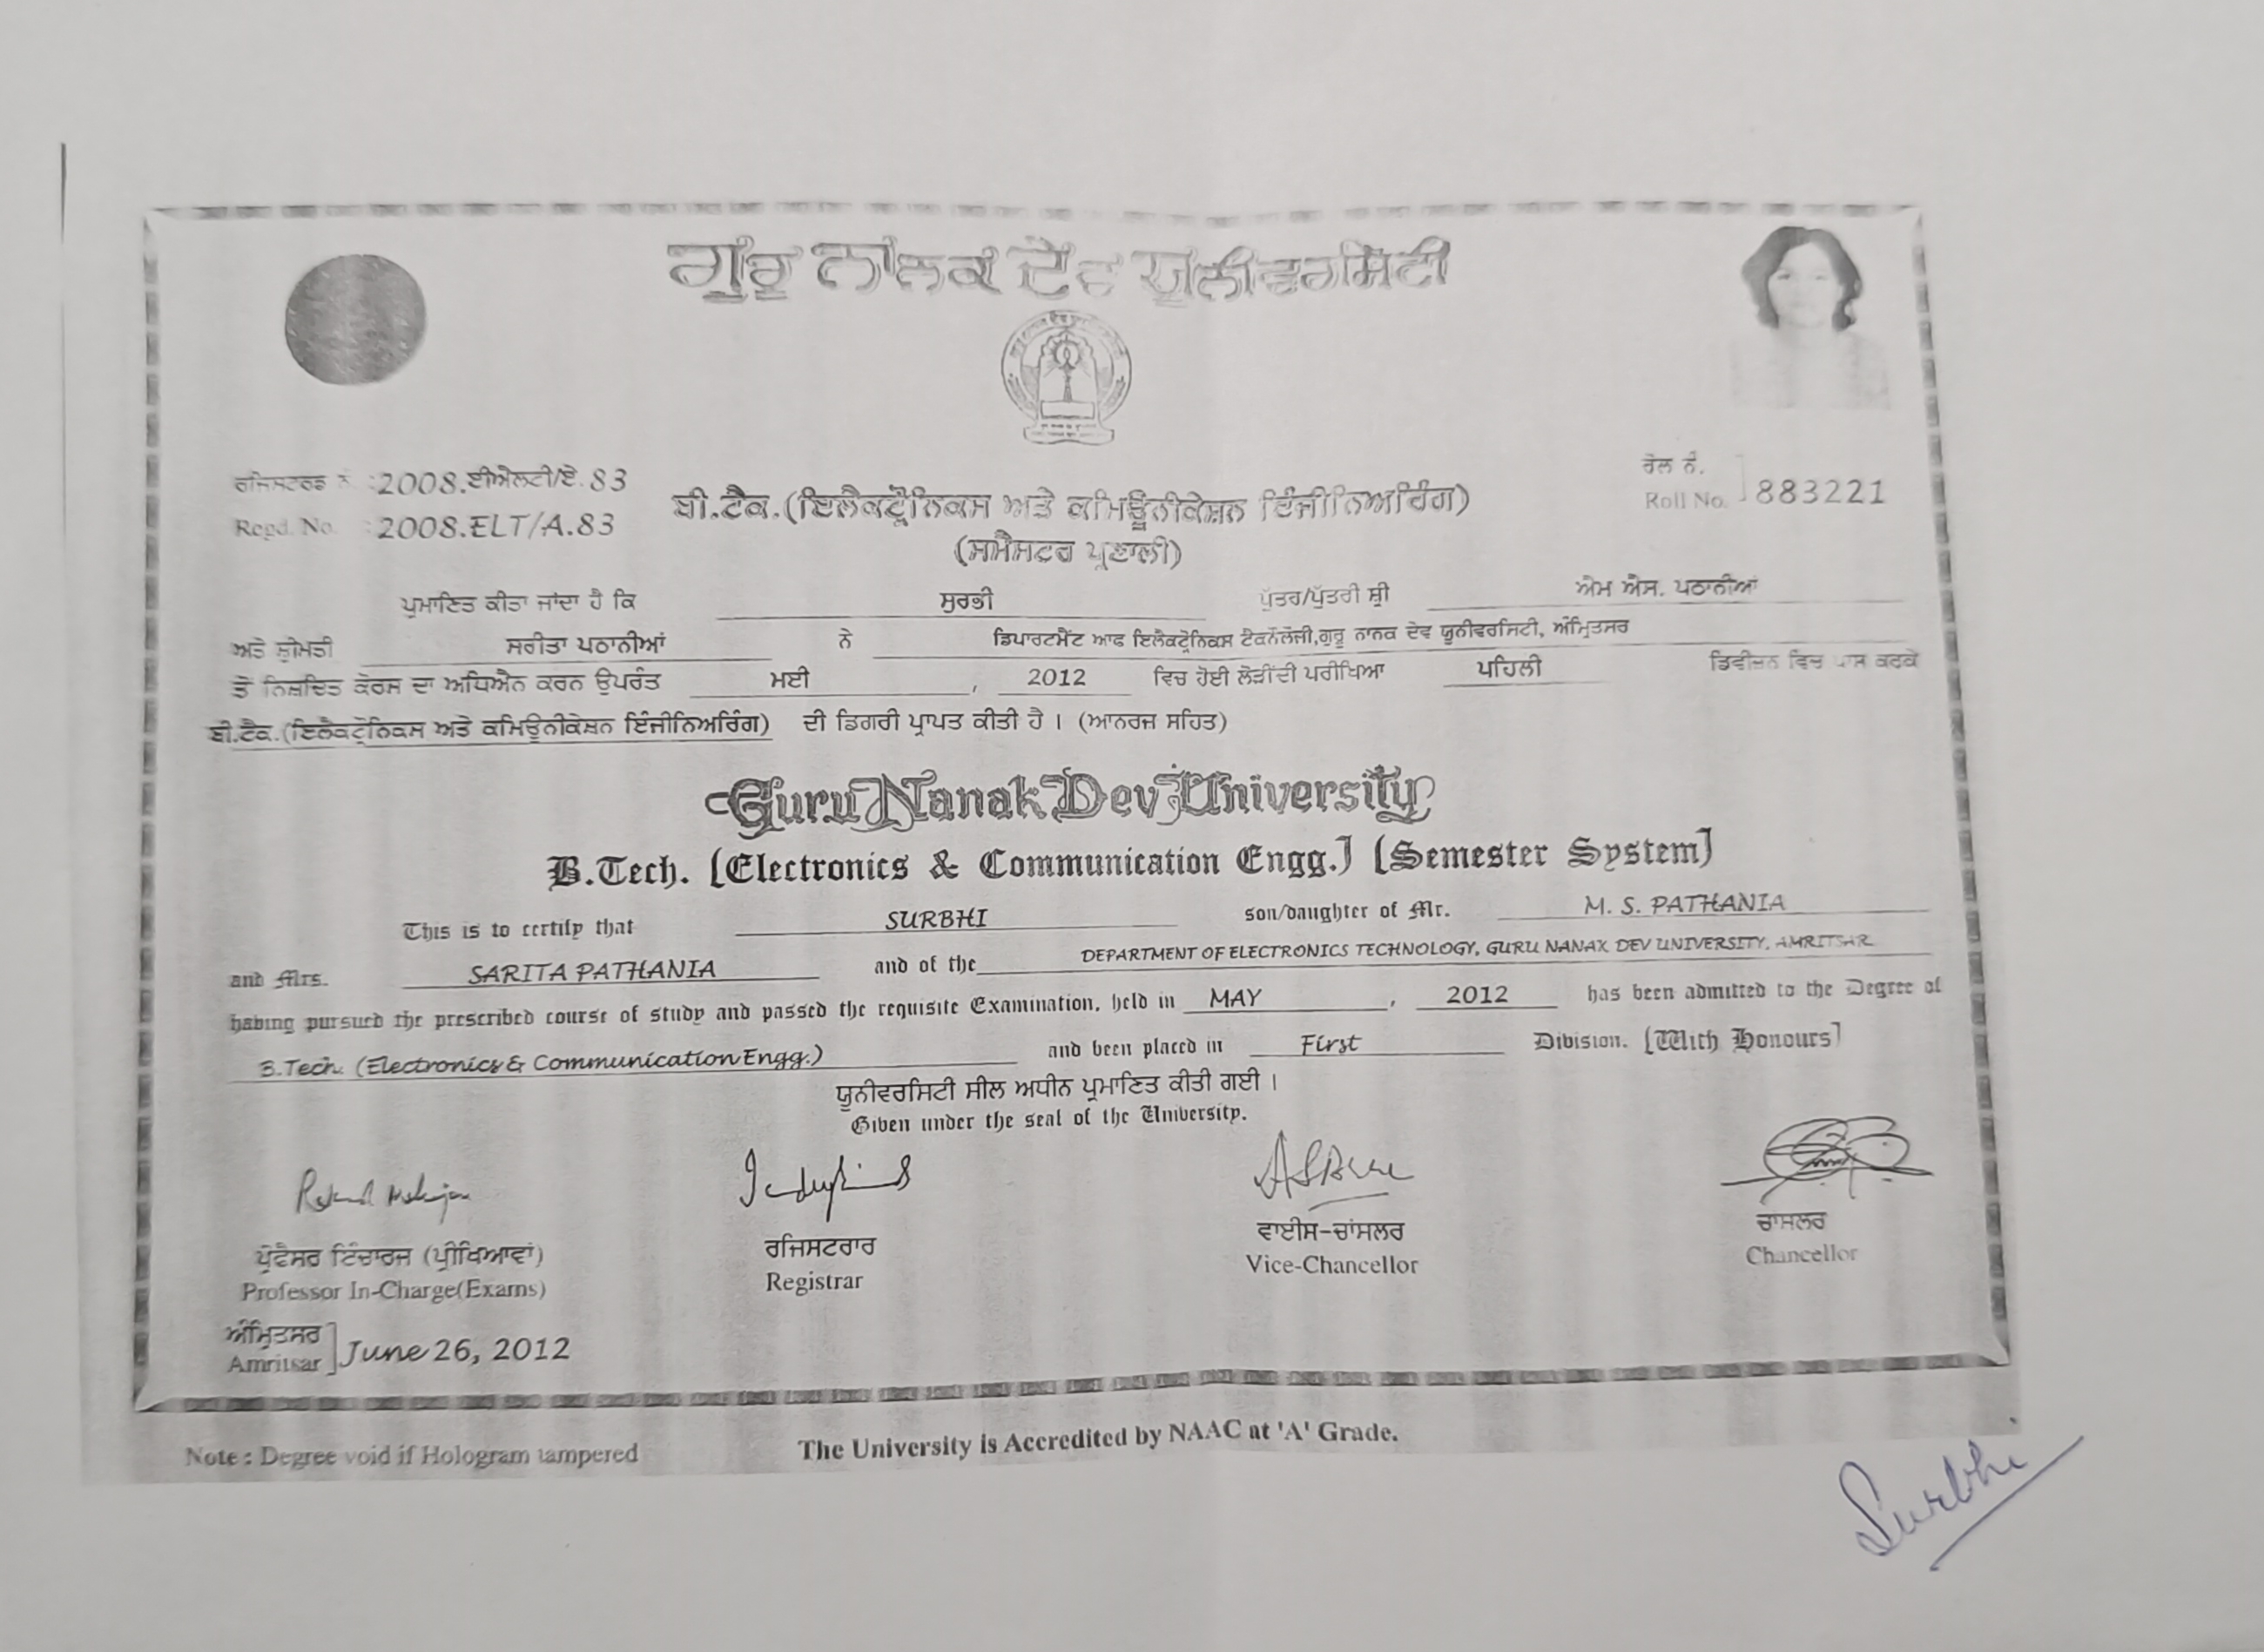 ਗੁਰੂ ਨਾਨਕ ਦੇਵ ਯੂਨੀਵਰਸਿਟੀ
ਰਜਿਸਟਰਡ ਨੰ :2008.ਈਐਲਟੀ/ਏ.83
Regd. No. :2008.ELT/A.83
ਰੋਲ ਨੰ.
Roll No. 883221
ਬੀ.ਟੈਕ.(ਇਲੈਕਟ੍ਰੋਨਿਕਸ ਅਤੇ ਕਮਿਊਨੀਕੇਸ਼ਨ ਇੰਜੀਨਿਅਰਿੰਗ)
(ਸਮੈਸਟਰ ਪ੍ਰਣਾਲੀ)
ਪ੍ਰਮਾਣਿਤ ਕੀਤਾ ਜਾਂਦਾ ਹੈ ਕਿ ਸੁਰਭੀ ਪੁੱਤਰ/ਪੁੱਤਰੀ ਸ਼੍ਰੀ ਐਮ ਐਸ. ਪਠਾਨੀਆਂ
ਅਤੇ ਸ਼੍ਰੀਮਤੀ ਸਰੀਤਾ ਪਠਾਨੀਆਂ ਨੇ ਡਿਪਾਰਟਮੈਂਟ ਆਫ ਇਲੈਕਟ੍ਰੋਨਿਕਸ ਟੈਕਨੌਲੋਜੀ,ਗੁਰੂ ਨਾਨਕ ਦੇਵ ਯੂਨੀਵਰਸਿਟੀ, ਅੰਮ੍ਰਿਤਸਰ
ਤੋਂ ਨਿਸ਼ਚਿਤ ਕੋਰਸ ਦਾ ਅਧਿਐਨ ਕਰਨ ਉਪਰੰਤ ਮਈ , 2012 ਵਿਚ ਹੋਈ ਲੋੜੀਂਦੀ ਪਰੀਖਿਆ ਪਹਿਲੀ ਡਿਵੀਜ਼ਨ ਵਿਚ ਪਾਸ ਕਰਕੇ
ਬੀ.ਟੈਕ.(ਇਲੈਕਟ੍ਰੋਨਿਕਸ ਅਤੇ ਕਮਿਊਨੀਕੇਸ਼ਨ ਇੰਜੀਨਿਅਰਿੰਗ) ਦੀ ਡਿਗਰੀ ਪ੍ਰਾਪਤ ਕੀਤੀ ਹੈ । (ਆਨਰਜ ਸਹਿਤ)
Guru Nanak Dev University
B.Tech. [Electronics & Communication Engg.] [Semester System]
This is to certify that SURBHI son/daughter of Mr. M. S. PATHANIA
and Mrs. SARITA PATHANIA and of the DEPARTMENT OF ELECTRONICS TECHNOLOGY, GURU NANAK DEV UNIVERSITY, AMRITSAR
having pursued the prescribed course of study and passed the requisite Examination, held in MAY , 2012 has been admitted to the Degree of
B.Tech. (Electronics & Communication Engg.) and been placed in First Division. [With Honours]
ਯੂਨੀਵਰਸਿਟੀ ਸੀਲ ਅਧੀਨ ਪ੍ਰਮਾਣਿਤ ਕੀਤੀ ਗਈ ।
Given under the seal of the University.
ਪ੍ਰੋਫੈਸਰ ਇੰਚਾਰਜ (ਪ੍ਰੀਖਿਆਵਾਂ) ਰਜਿਸਟਰਾਰ ਵਾਈਸ-ਚਾਂਸਲਰ ਚਾਂਸਲਰ
Professor In-Charge(Exams) Registrar Vice-Chancellor Chancellor
ਅੰਮ੍ਰਿਤਸਰ
Amritsar June 26, 2012
Note : Degree void if Hologram tampered
The University is Accredited by NAAC at 'A' Grade.
Surbhi